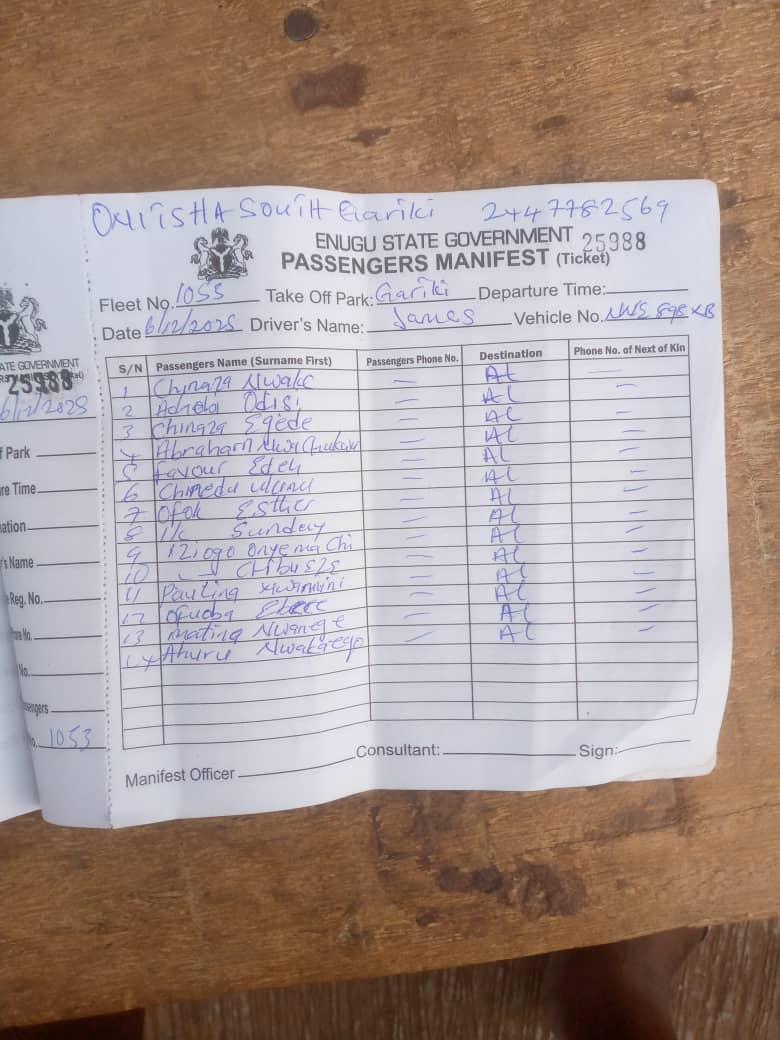 ONITSHA SOUTH Gariki 2447782569
ENUGU STATE GOVERNMENT 25988
PASSENGERS MANIFEST (Ticket)
Fleet No. 1053 Take Off Park: Gariki Departure Time:
Date 6/12/2025 Driver's Name: James Vehicle No. NWE 898 XB
S/N Passengers Name (Surname First) Passengers Phone No. Destination Phone No. of Next of Kin
1 Chinaza Nwake — AL —
2 Odisi — AL —
3 Chinaza Egede — AL —
4 Abraham Nwachukwu — AL —
5 Favour Edeh — AL —
6 Chinedu — AL —
7 Ofok Esther — AL —
8 I/k Sunday — AL —
9 Iziogo Onyemachi — AL —
10 Chibueze — AL —
11 Pauling — AL —
12 Ofuoba Ebere — AL —
13 Mating Nwanege — AL —
14 Ahuru Nwakaego — AL —
Manifest Officer Consultant: Sign:
ATE GOVERNMENT
25988
6/12/2025
f Park
re Time
ation
's Name
Reg. No.
No.
No.
engers
1053